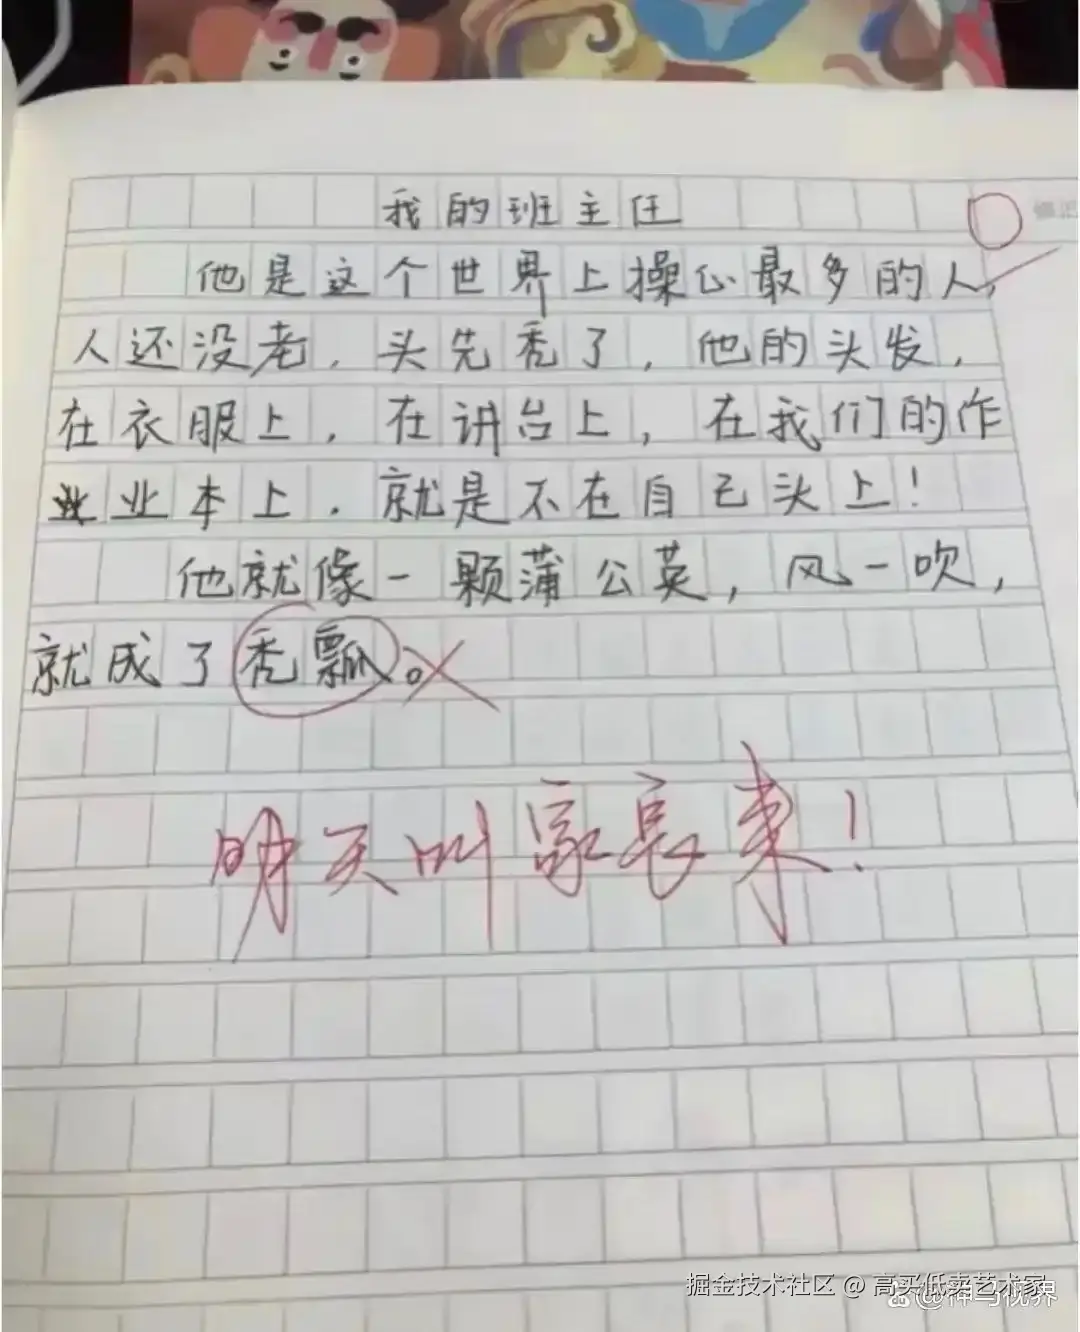 我的班主任
他是这个世界上操心最多的人,
人还没老,头先秃了,他的头发,
在衣服上,在讲台上,在我们的作
业业本上,就是不在自己头上!
他就像一颗蒲公英,风一吹,
就成了秃瓢。
明天叫家长来!
掘金技术社区 @ 高买低卖艺术家